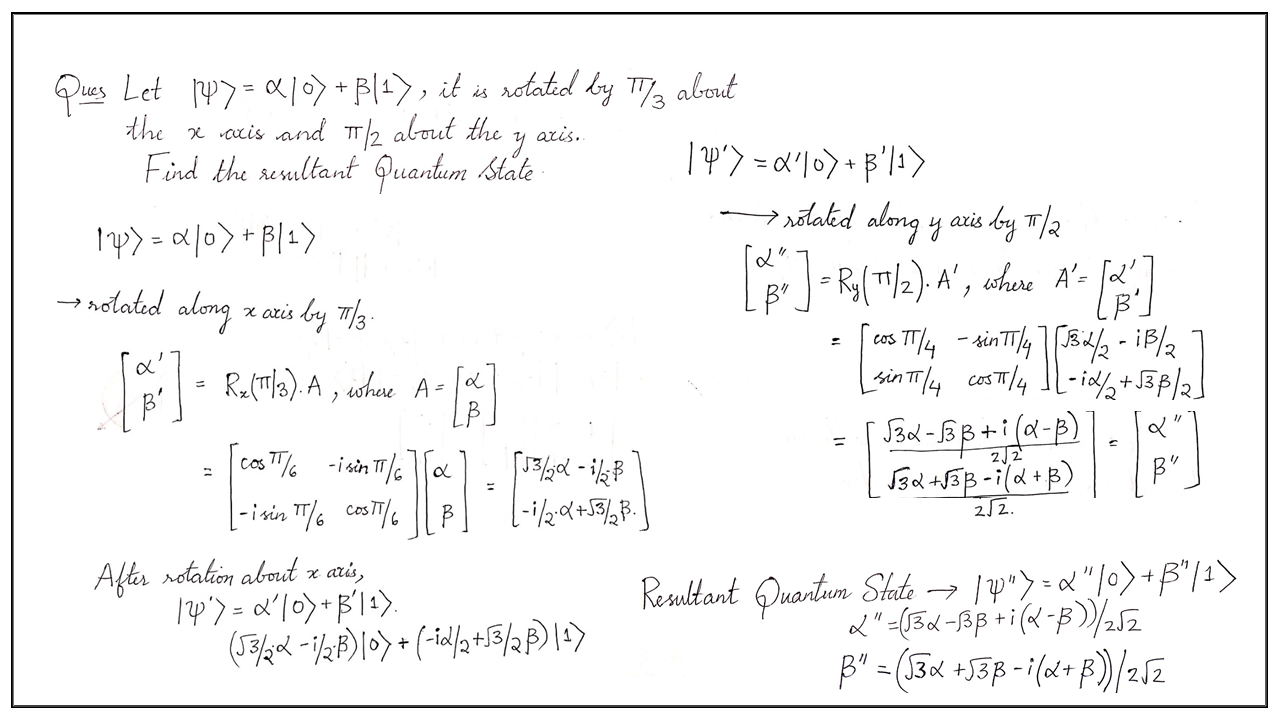 Ques Let |ψ> = α|0> + β|1>, it is rotated by π/3 about
the x axis and π/2 about the y axis.
Find the resultant Quantum State.
|ψ> = α|0> + β|1>
→ rotated along x axis by π/3.
[α' β'] = Rx(π/3). A , where A = [α β]
= [cos π/6 -i sin π/6
-i sin π/6 cos π/6] [α β] = [√3/2.α - i/2.β
-i/2.α + √3/2 β.]
After rotation about x axis,
|ψ'> = α'|0> + β'|1>.
(√3/2.α - i/2.β)|0> + (-iα/2 + √3/2 β)|1>
|ψ'> = α'|0> + β'|1>
→ rotated along y axis by π/2
[α'' β''] = Ry(π/2). A', where A' = [α' β']
= [cos π/4 -sin π/4
sin π/4 cos π/4] [√3α/2 - iβ/2
-iα/2 + √3β/2]
= [(√3α - √3β + i(α - β))/2√2
(√3α + √3β - i(α + β))/2√2.] = [α'' β'']
Resultant Quantum State → |ψ''> = α''|0> + β''|1>
α'' = (√3α - √3β + i(α - β))/2√2
β'' = (√3α + √3β - i(α + β))/2√2